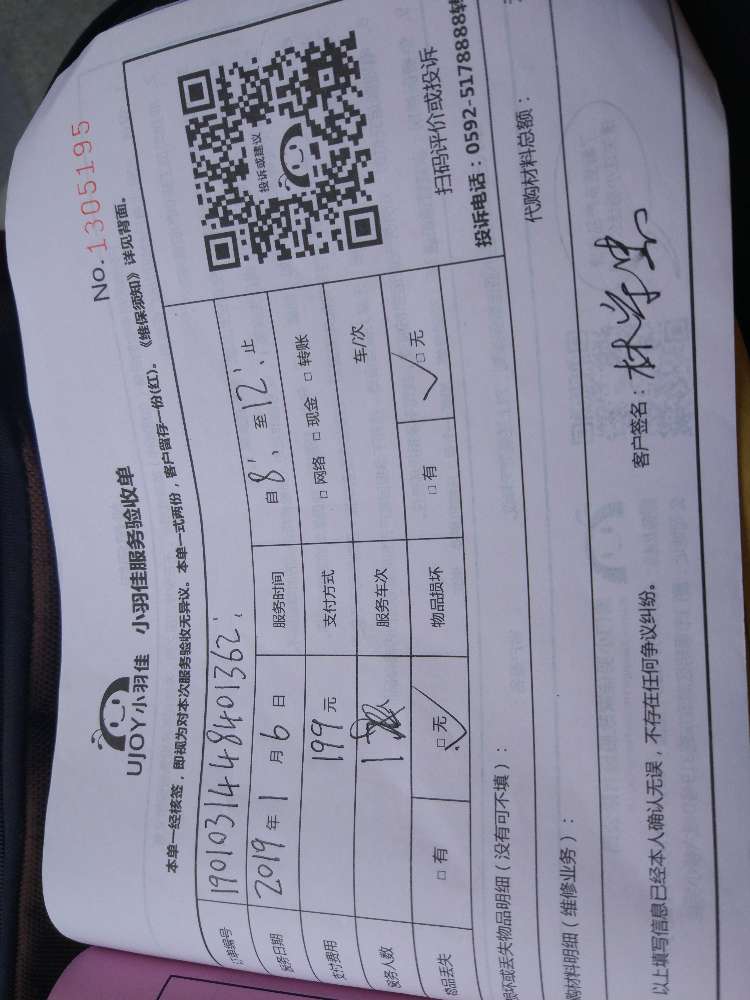 No. 1305195
UJOY小羽佳 小羽佳服务验收单
本单一经核签，即视为对本次服务验收无异议。本单一式两份，客户留存一份(红)。《维保须知》详见背面。
订单编号 190103144848401362
服务日期 2019年1月6日 服务时间 自8:至12:止
支付费用 199元 支付方式 □网络 □现金 □转账
服务人数 1人 服务车次 车/次
物品丢失 □有 □无 ✓ 物品损坏 □有 □无 ✓
投诉或建议
扫码评价或投诉
投诉电话：0592-5178888转
损坏或丢失物品明细（没有可不填）：
购材料明细（维修业务）： 代购材料总额：
以上填写信息已经本人确认无误，不存在任何争议纠纷。 客户签名：林学忠